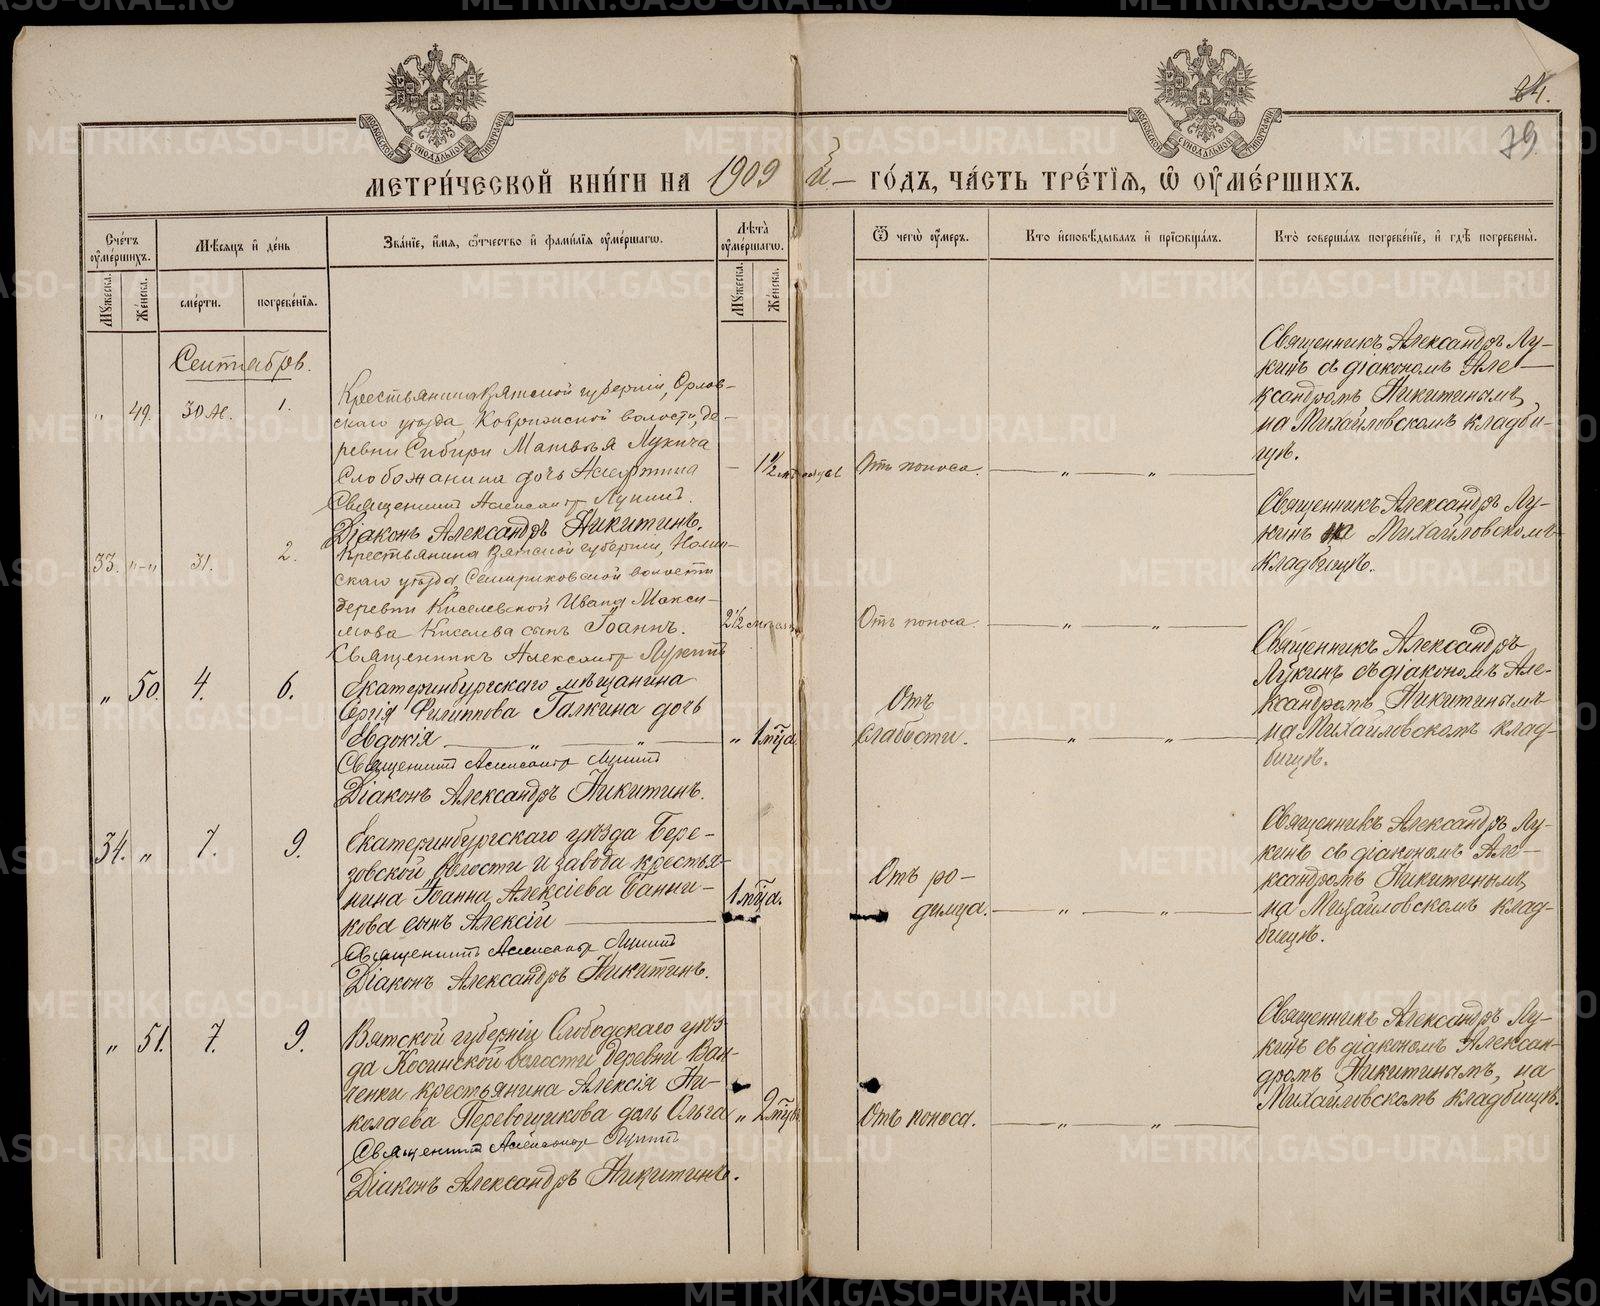 84.
79
МЕТРИ́ЧЕСКОЙ КНИ́ГИ НА 1909 й — ГО́ДЪ, ЧА́СТЬ ТРЕ́ТІѦ, Ѡ ОУ҆МЕ́РШИХЪ.
Сче́тъ оу҆ме́ршихъ.
Мѣ́сѧцъ и҆ де́нь
Зва́нїе, и҆́мѧ, ѻ҆́тчество и҆ фами́лїѧ оу҆ме́ршагѡ.
Лѣ́та оу҆ме́ршагѡ.
Ѿ чегѡ̀ оу҆́меръ.
Кто̀ и҆сповѣ́дывалъ и҆ прїѡбща́лъ.
Кто̀ соверша́лъ погребе́нїе, и҆ гдѣ̀ погребены̀.
Му́жеска.
Же́нска.
сме́рти.
погребе́нїѧ.
Му́жеска.
Же́нска.
Сентябрь.
„ 49. 30 Ав. 1.
Крестьянина Вятской губерніи, Орлов-
скаго уѣзда, волости, де-
ревни Сибири Матвѣя Лукича
Слобожанина дочь
Священникъ Александръ Лукинъ.
Діаконъ Александръ Никитинъ.
— 1½
Отъ поноса. — „ — „ —
Священникъ Александръ Лу-
кинъ съ діакономъ Але-
ксандромъ Никитинымъ,
на Михайловскомъ кладби-
щѣ.
33. „-„ 31. 2.
Крестьянина Вятской губерніи, Нолин-
скаго уѣзда, волости
деревни Киселевской Ивана Макси-
мова Киселева сынъ Іоаннъ.
Священникъ Александръ Лукинъ
2½
Отъ поноса. — „ — „ —
Священникъ Александръ Лу-
кинъ на Михайловскомъ
кладбищѣ.
„ 50. 4. 6.
Екатеринбургскаго мѣщанина
Сергія Филиппова Галкина дочь
Евдокія — „ — „ —
Священникъ Александръ Лукинъ
Діаконъ Александръ Никитинъ.
„ 1 мца.
Отъ
слабости. — „ — „ —
Священникъ Александръ
Лукинъ съ діакономъ Але-
ксандромъ Никитинымъ
на Михайловскомъ клад-
бищѣ.
34. „ 7. 9.
Екатеринбургскаго уѣзда Бере-
зовской волости и завода крестья-
нина Іоанна Алексіева Банни-
кова сынъ Алексій —
Священникъ Александръ Лукинъ
Діаконъ Александръ Никитинъ.
1 мца.
Отъ ро-
димца. — „ — „ —
Священникъ Александръ Лу-
кинъ съ діакономъ Але-
ксандромъ Никитинымъ,
на Михайловскомъ клад-
бищѣ.
„ 51. 7. 9.
Вятской губерніи Слободскаго уѣз-
да Косинской волости деревни Ван-
ченки крестьянина Алексія Ни-
колаева Перевощикова дочь Ольга
Священникъ Александръ Лукинъ
Діаконъ Александръ Никитинъ.
„ 2 мцѣв
Отъ поноса. — „ — „ —
Священникъ Александръ Лу-
кинъ съ діакономъ Алексан-
дромъ Никитинымъ, на
Михайловскомъ кладбищѣ.
METRIKI.GASO-URAL.RU